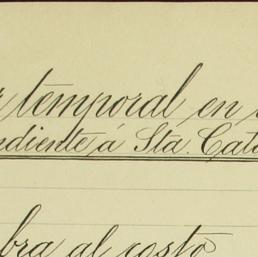 temporal en
ndiente á Sta. Cata
bra al costo